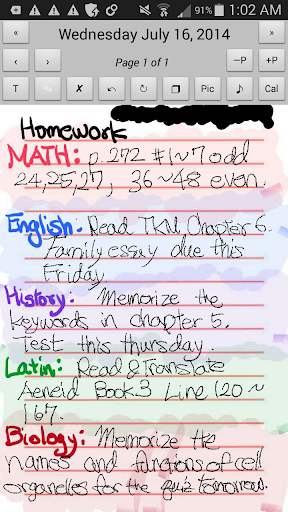 91% 1:02 AM
« Wednesday July 16, 2014 »
‹ › Page 1 of 1 –P +P
T ✗ Pic Cal
Homework
MATH: p.272 #1~7 odd
24,25,27, 36~48 even.
English: Read TKM Chapter 6.
Family essay due this
Friday
History: Memorize the
keywords in chapter 5.
Test this thursday.
Latin: Read & Translate
Aeneid Book 3 Line 120~
167.
Biology: Memorize the
names and functions of cell
organelles for the quiz tomorrow.